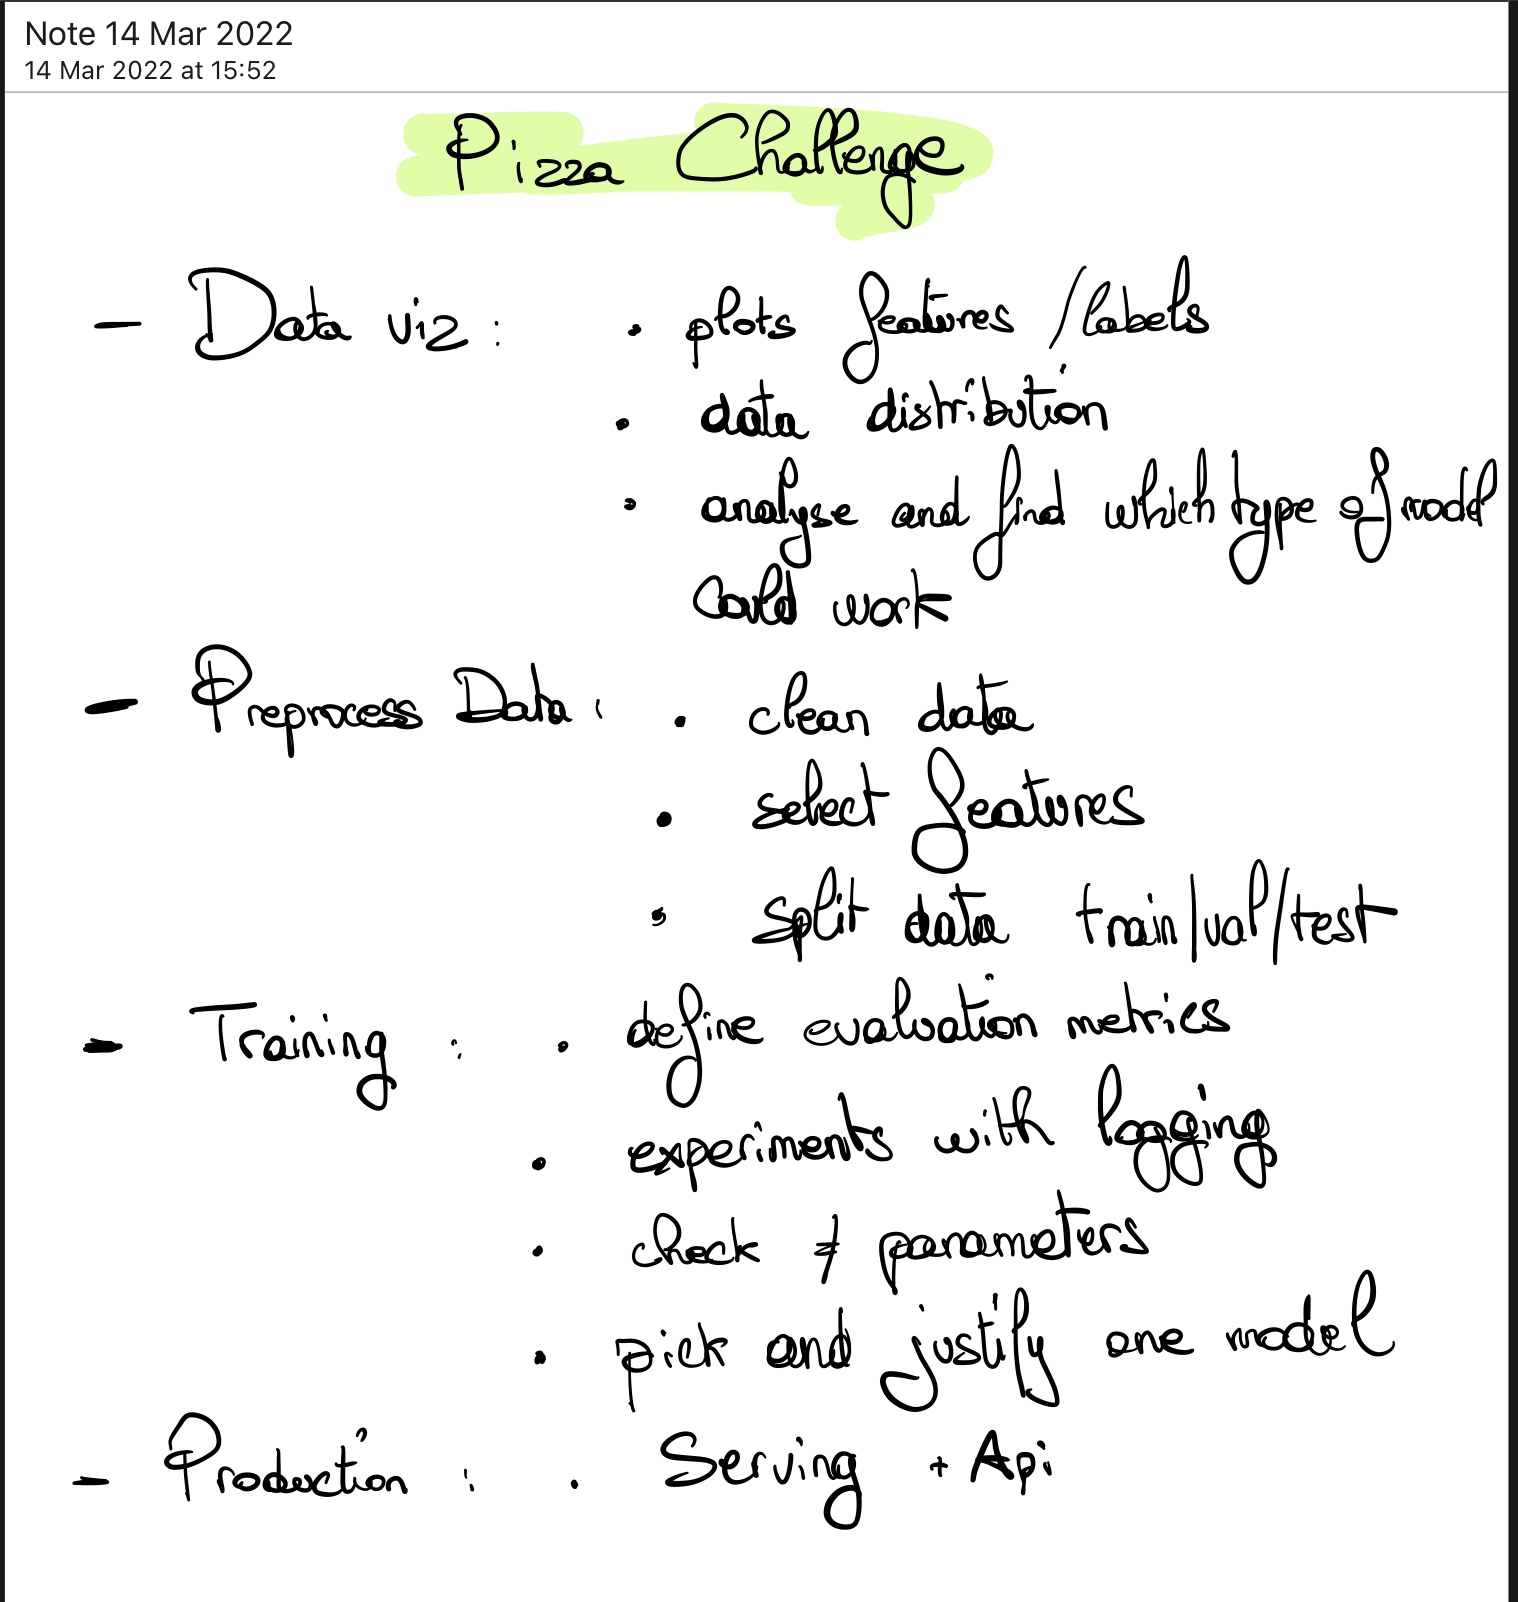 Note 14 Mar 2022
14 Mar 2022 at 15:52
Pizza Challenge
- Data viz : • plots features / labels
• data distribution
• analyse and find which type of model
could work
- Preprocess Data : • clean data
• select features
• split data train/val/test
- Training : • define evaluation metrics
• experiments with logging
• check ≠ parameters
• pick and justify one model
- Production : • Serving + Api